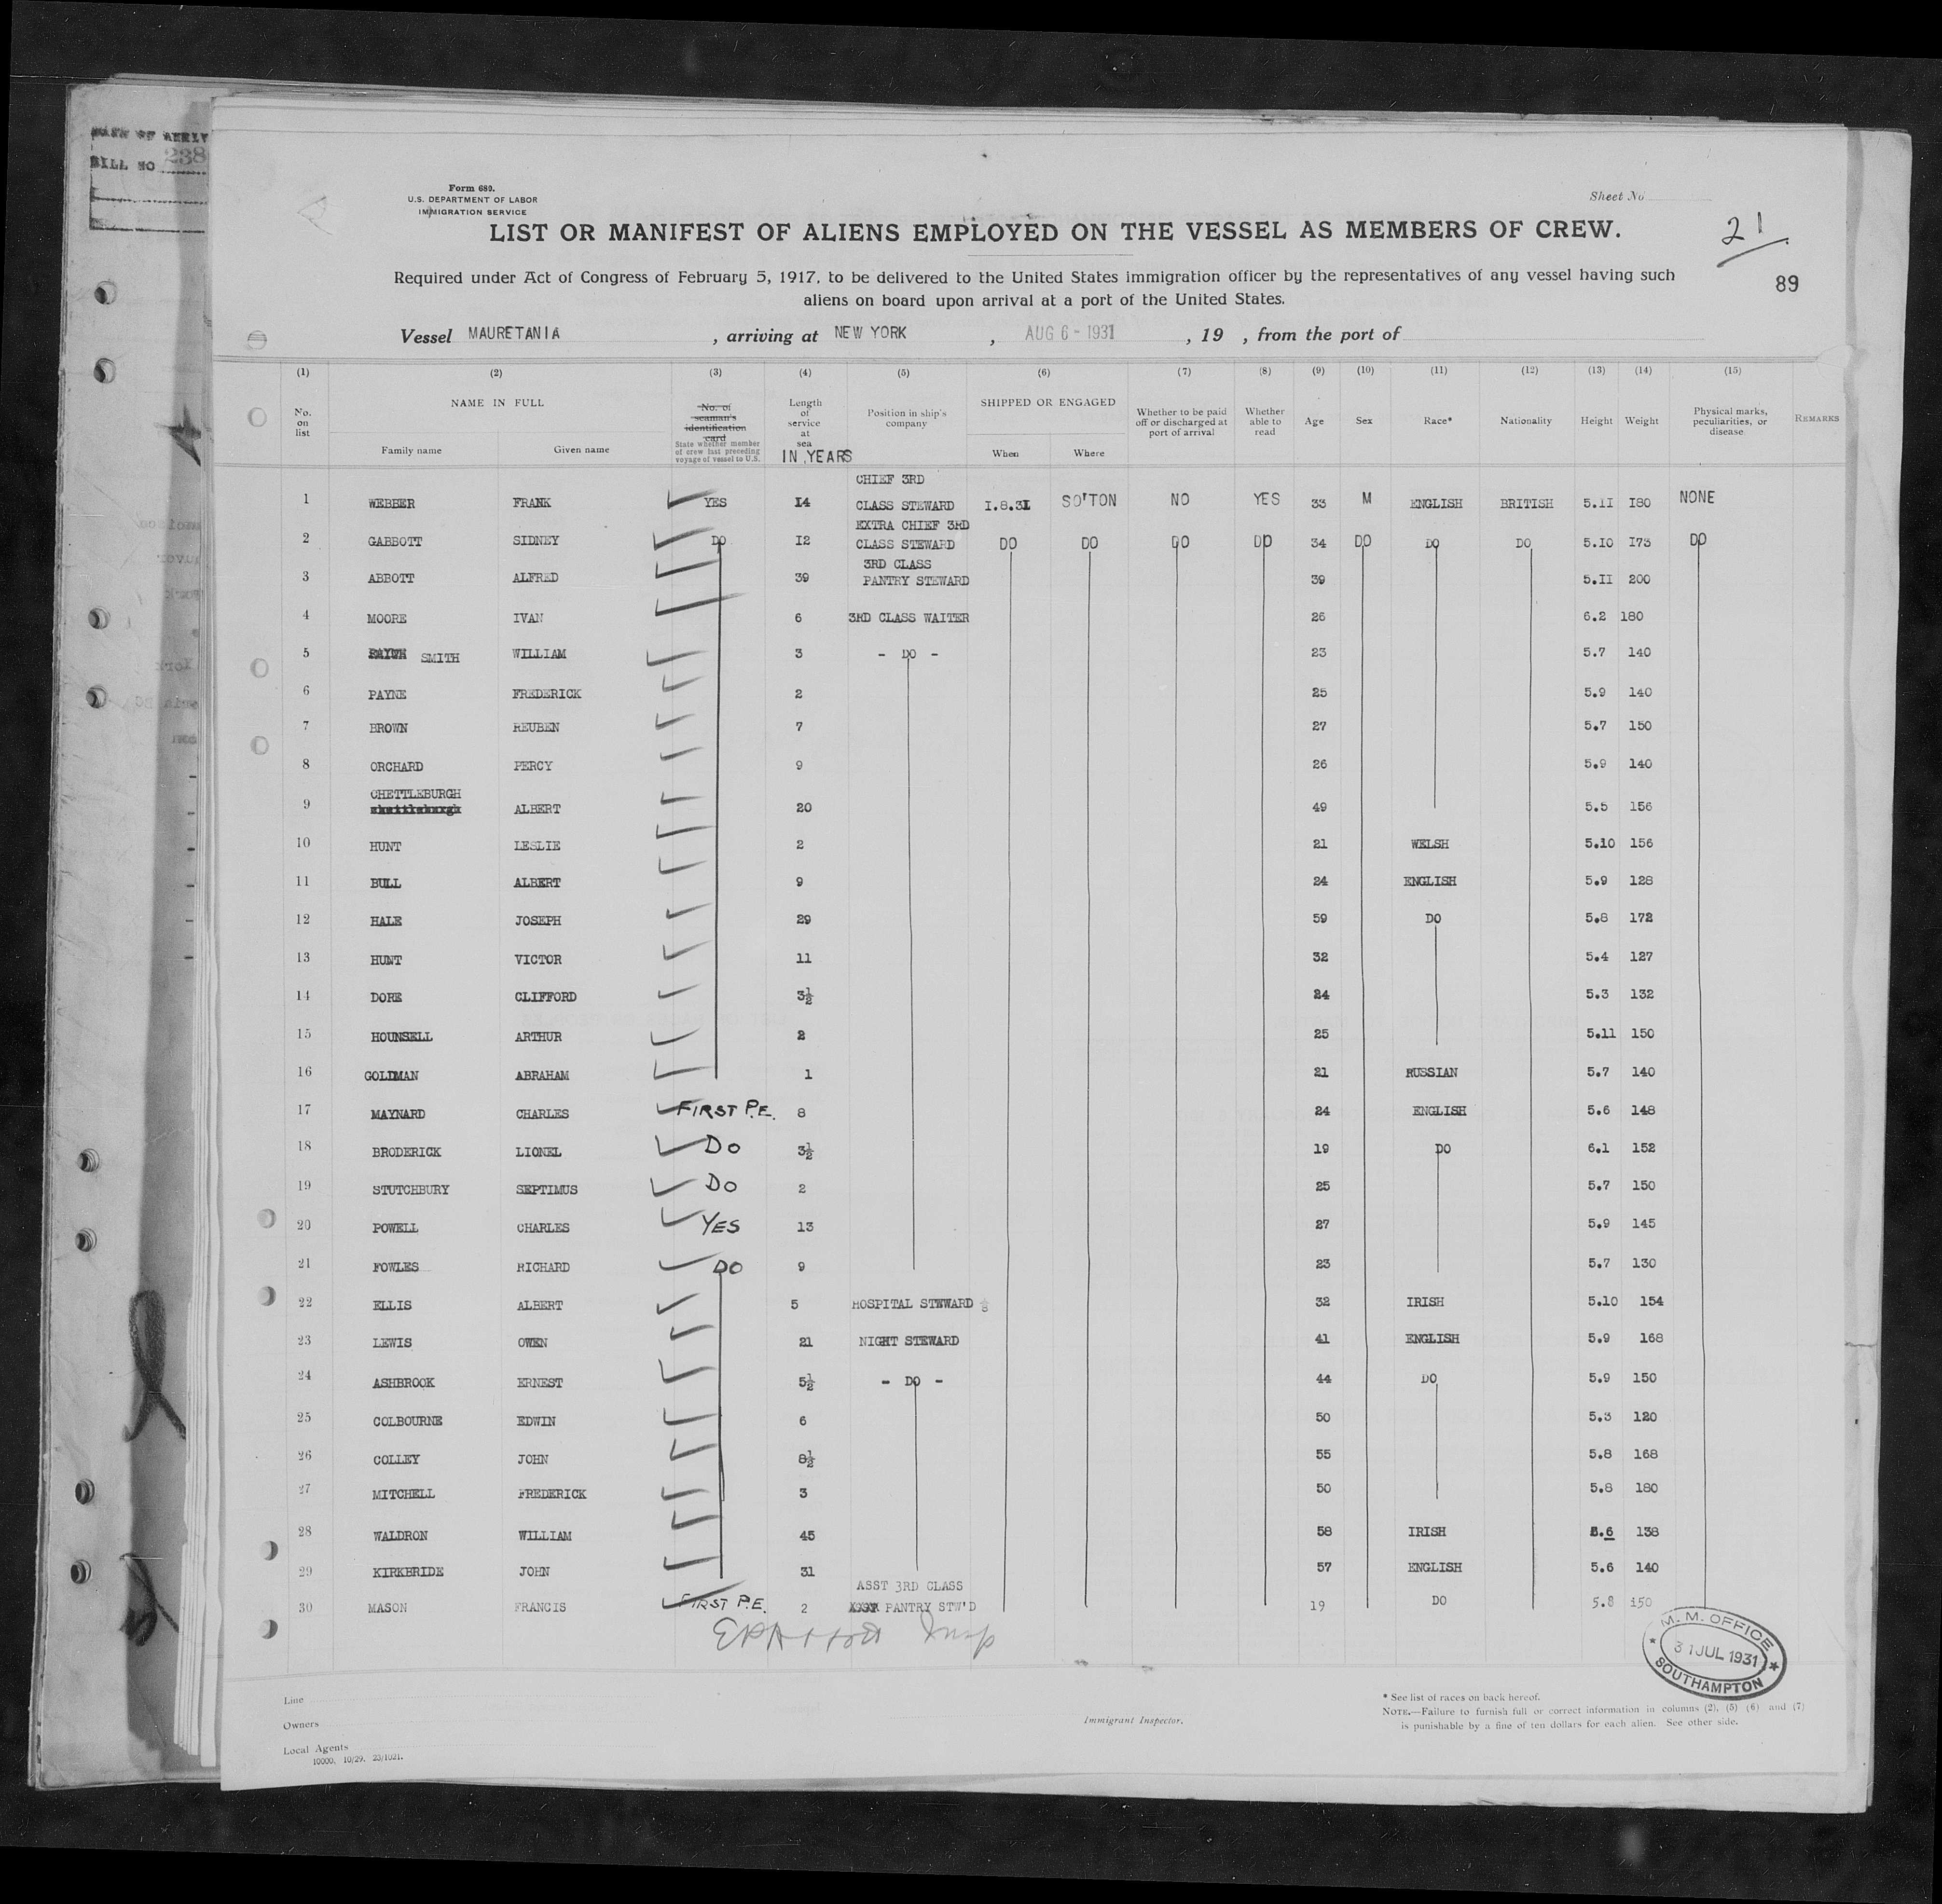 BILL NO 238
Form 689.
U.S. DEPARTMENT OF LABOR
IMMIGRATION SERVICE
Sheet No
LIST OR MANIFEST OF ALIENS EMPLOYED ON THE VESSEL AS MEMBERS OF CREW.
21
Required under Act of Congress of February 5, 1917, to be delivered to the United States immigration officer by the representatives of any vessel having such
aliens on board upon arrival at a port of the United States.
89
Vessel MAURETANIA , arriving at NEW YORK , AUG 6 - 1931 , 19 , from the port of
(1) (2) (3) (4) (5) (6) (7) (8) (9) (10) (11) (12) (13) (14) (15)
No. on list
NAME IN FULL
Family name Given name
No. of seaman's identification card
State whether member of crew last preceding voyage of vessel to U.S.
Length of service at sea
IN YEARS
Position in ship's company
SHIPPED OR ENGAGED
When Where
Whether to be paid off or discharged at port of arrival
Whether able to read
Age
Sex
Race*
Nationality
Height
Weight
Physical marks, peculiarities, or disease
REMARKS
1 WEBBER FRANK YES 14 CHIEF 3RD CLASS STEWARD 1.8.31 SO'TON NO YES 33 M ENGLISH BRITISH 5.11 180 NONE
2 GABBOTT SIDNEY DO 12 EXTRA CHIEF 3RD CLASS STEWARD DO DO DO DO 34 DO DO DO 5.10 173 DO
3 ABBOTT ALFRED 39 3RD CLASS PANTRY STEWARD 39 5.11 200
4 MOORE IVAN 6 3RD CLASS WAITER 26 6.2 180
5 SMITH WILLIAM 3 - DO - 23 5.7 140
6 PAYNE FREDERICK 2 25 5.9 140
7 BROWN REUBEN 7 27 5.7 150
8 ORCHARD PERCY 9 26 5.9 140
9 CHETTLEBURGH ALBERT 20 49 5.5 156
10 HUNT LESLIE 2 21 WELSH 5.10 156
11 BULL ALBERT 9 24 ENGLISH 5.9 128
12 HALE JOSEPH 29 59 DO 5.8 172
13 HUNT VICTOR 11 32 5.4 127
14 DORE CLIFFORD 3½ 24 5.3 132
15 HOUNSELL ARTHUR 2 25 5.11 150
16 GOLDMAN ABRAHAM 1 21 RUSSIAN 5.7 140
17 MAYNARD CHARLES FIRST P.E. 8 24 ENGLISH 5.6 148
18 BRODERICK LIONEL DO 3½ 19 DO 6.1 152
19 STUTCHBURY SEPTIMUS DO 2 25 5.7 150
20 POWELL CHARLES YES 13 27 5.9 145
21 FOWLES RICHARD DO 9 23 5.7 130
22 ELLIS ALBERT 5 HOSPITAL STEWARD 32 IRISH 5.10 154
23 LEWIS OWEN 21 NIGHT STEWARD 41 ENGLISH 5.9 168
24 ASHBROOK ERNEST 5½ - DO - 44 DO 5.9 150
25 COLBOURNE EDWIN 6 50 5.3 120
26 COLLEY JOHN 8½ 55 5.8 168
27 MITCHELL FREDERICK 3 50 5.8 180
28 WALDRON WILLIAM 45 58 IRISH 5.6 138
29 KIRKBRIDE JOHN 31 57 ENGLISH 5.6 140
30 MASON FRANCIS FIRST P.E. 2 ASST 3RD CLASS PANTRY STW'D 19 DO 5.8 150
M. M. OFFICE
31 JUL 1931
SOUTHAMPTON
Line
Owners
Local Agents
10000. 10/29. 23/1021.
Immigrant Inspector.
* See list of races on back hereof.
NOTE.—Failure to furnish full or correct information in columns (2), (5) (6) and (7)
is punishable by a fine of ten dollars for each alien. See other side.